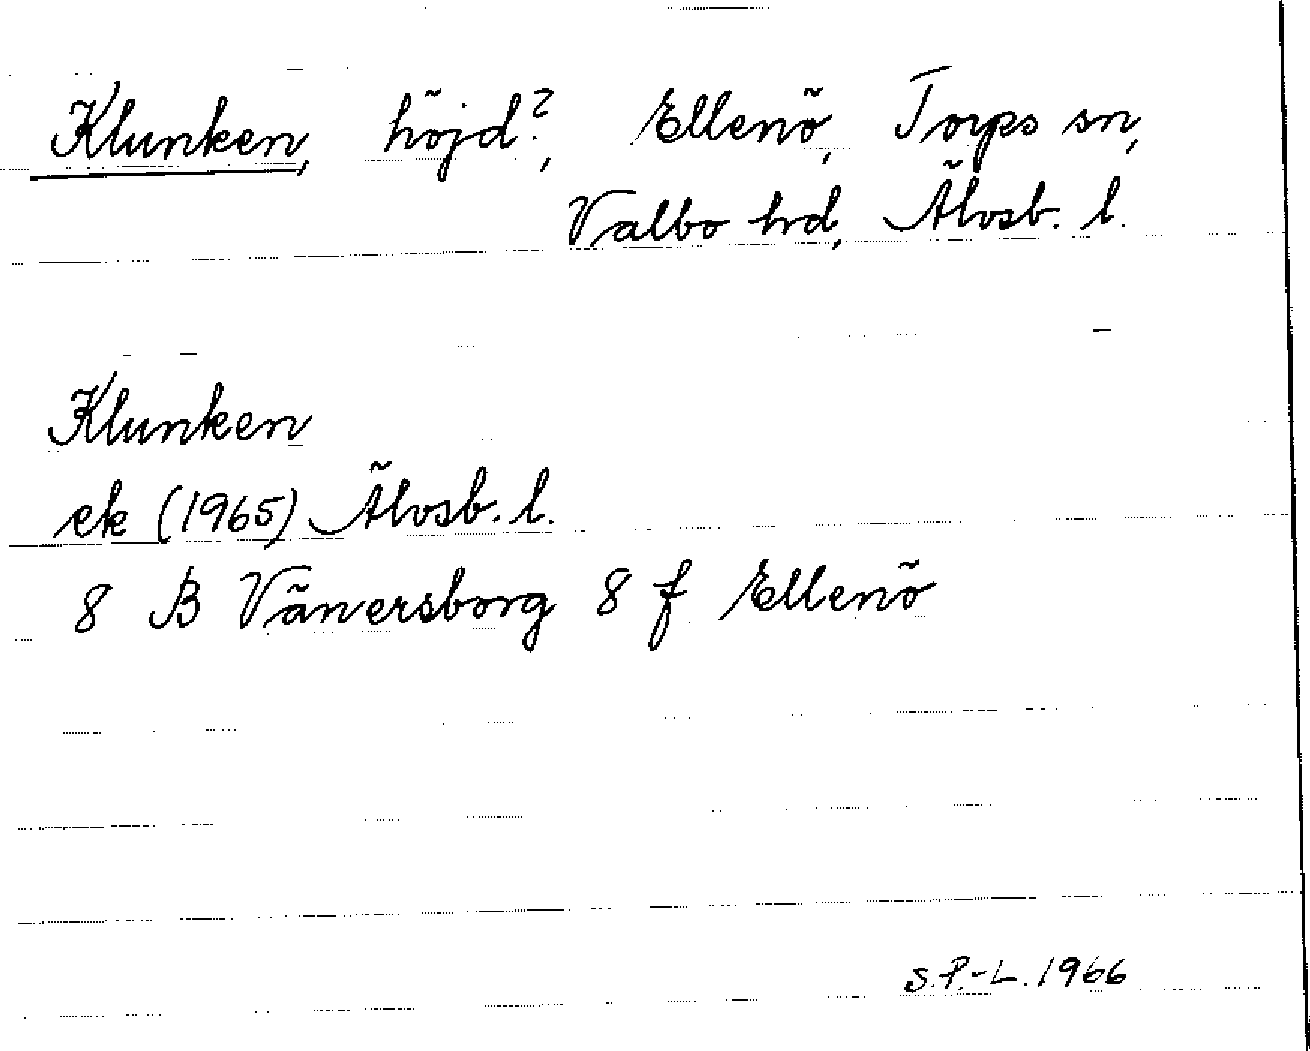 Klunken, höjd?, Ellenö, Torps sn,
Valbo hd, Älvsb. l.
Klunken
ek (1965) Älvsb. l.
8 B Vänersborg 8 f Ellenö
S.P.-L. 1966